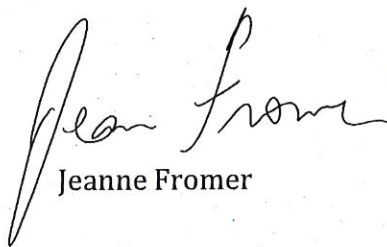 Jean Frome
Jeanne Fromer